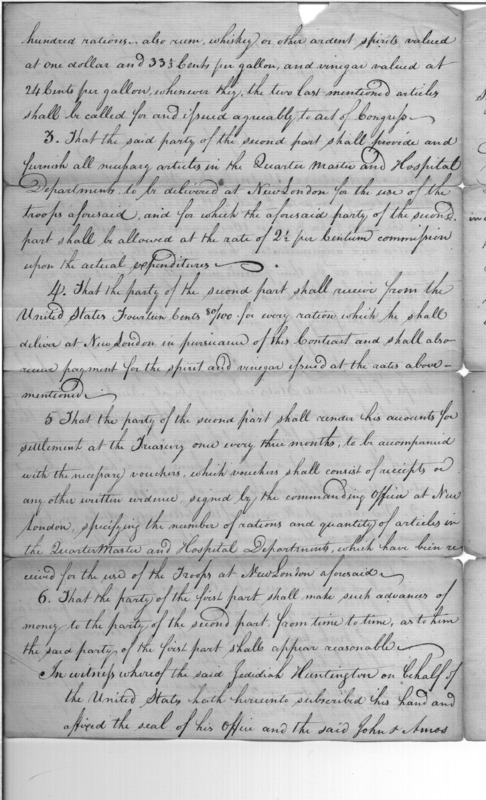 hundred rations - also rum, whiskey or other ardent spirits valued
at one dollar and 33⅓ Cents per gallon, and vinegar valued at
24 Cents per gallon, whenever they, the two last mentioned articles
shall be called for and issued agreeably to act of Congress
3. That the said party of the second part shall provide and
furnish all necessary articles in the Quarter Master and Hospital
Departments to be delivered at New London for the use of the
troops aforesaid, and for which the aforesaid party of the second
part shall be allowed at the rate of 2½ per Centum commission
upon the actual expenditures.
4. That the party of the second part shall receive from the
United States Fourteen Cents 80/100 for every ration which he shall
deliver at New London in pursuance of this Contract and shall also
receive payment for the spirit and vinegar issued at the rates above-
mentioned
5 That the party of the second part shall render his accounts for
settlement at the Treasury once every three months, to be accompanied
with the necessary vouchers, which vouchers shall consist of receipts or
any other written evidence, signed by the commanding Officer at New
London, specifying the number of rations and quantity of articles in
the Quarter Master and Hospital Departments, which have been re
ceived for the use of the Troops at New London aforesaid
6. That the party of the first part shall make such advances of
money to the party of the second part, from time to time, as to him
the said party of the first part shall appear reasonable
In witness whereof the said Jedidiah Huntington on behalf of
the United States hath hereunto subscribed his hand and
affixed the seal of his Office and the said John & Amos